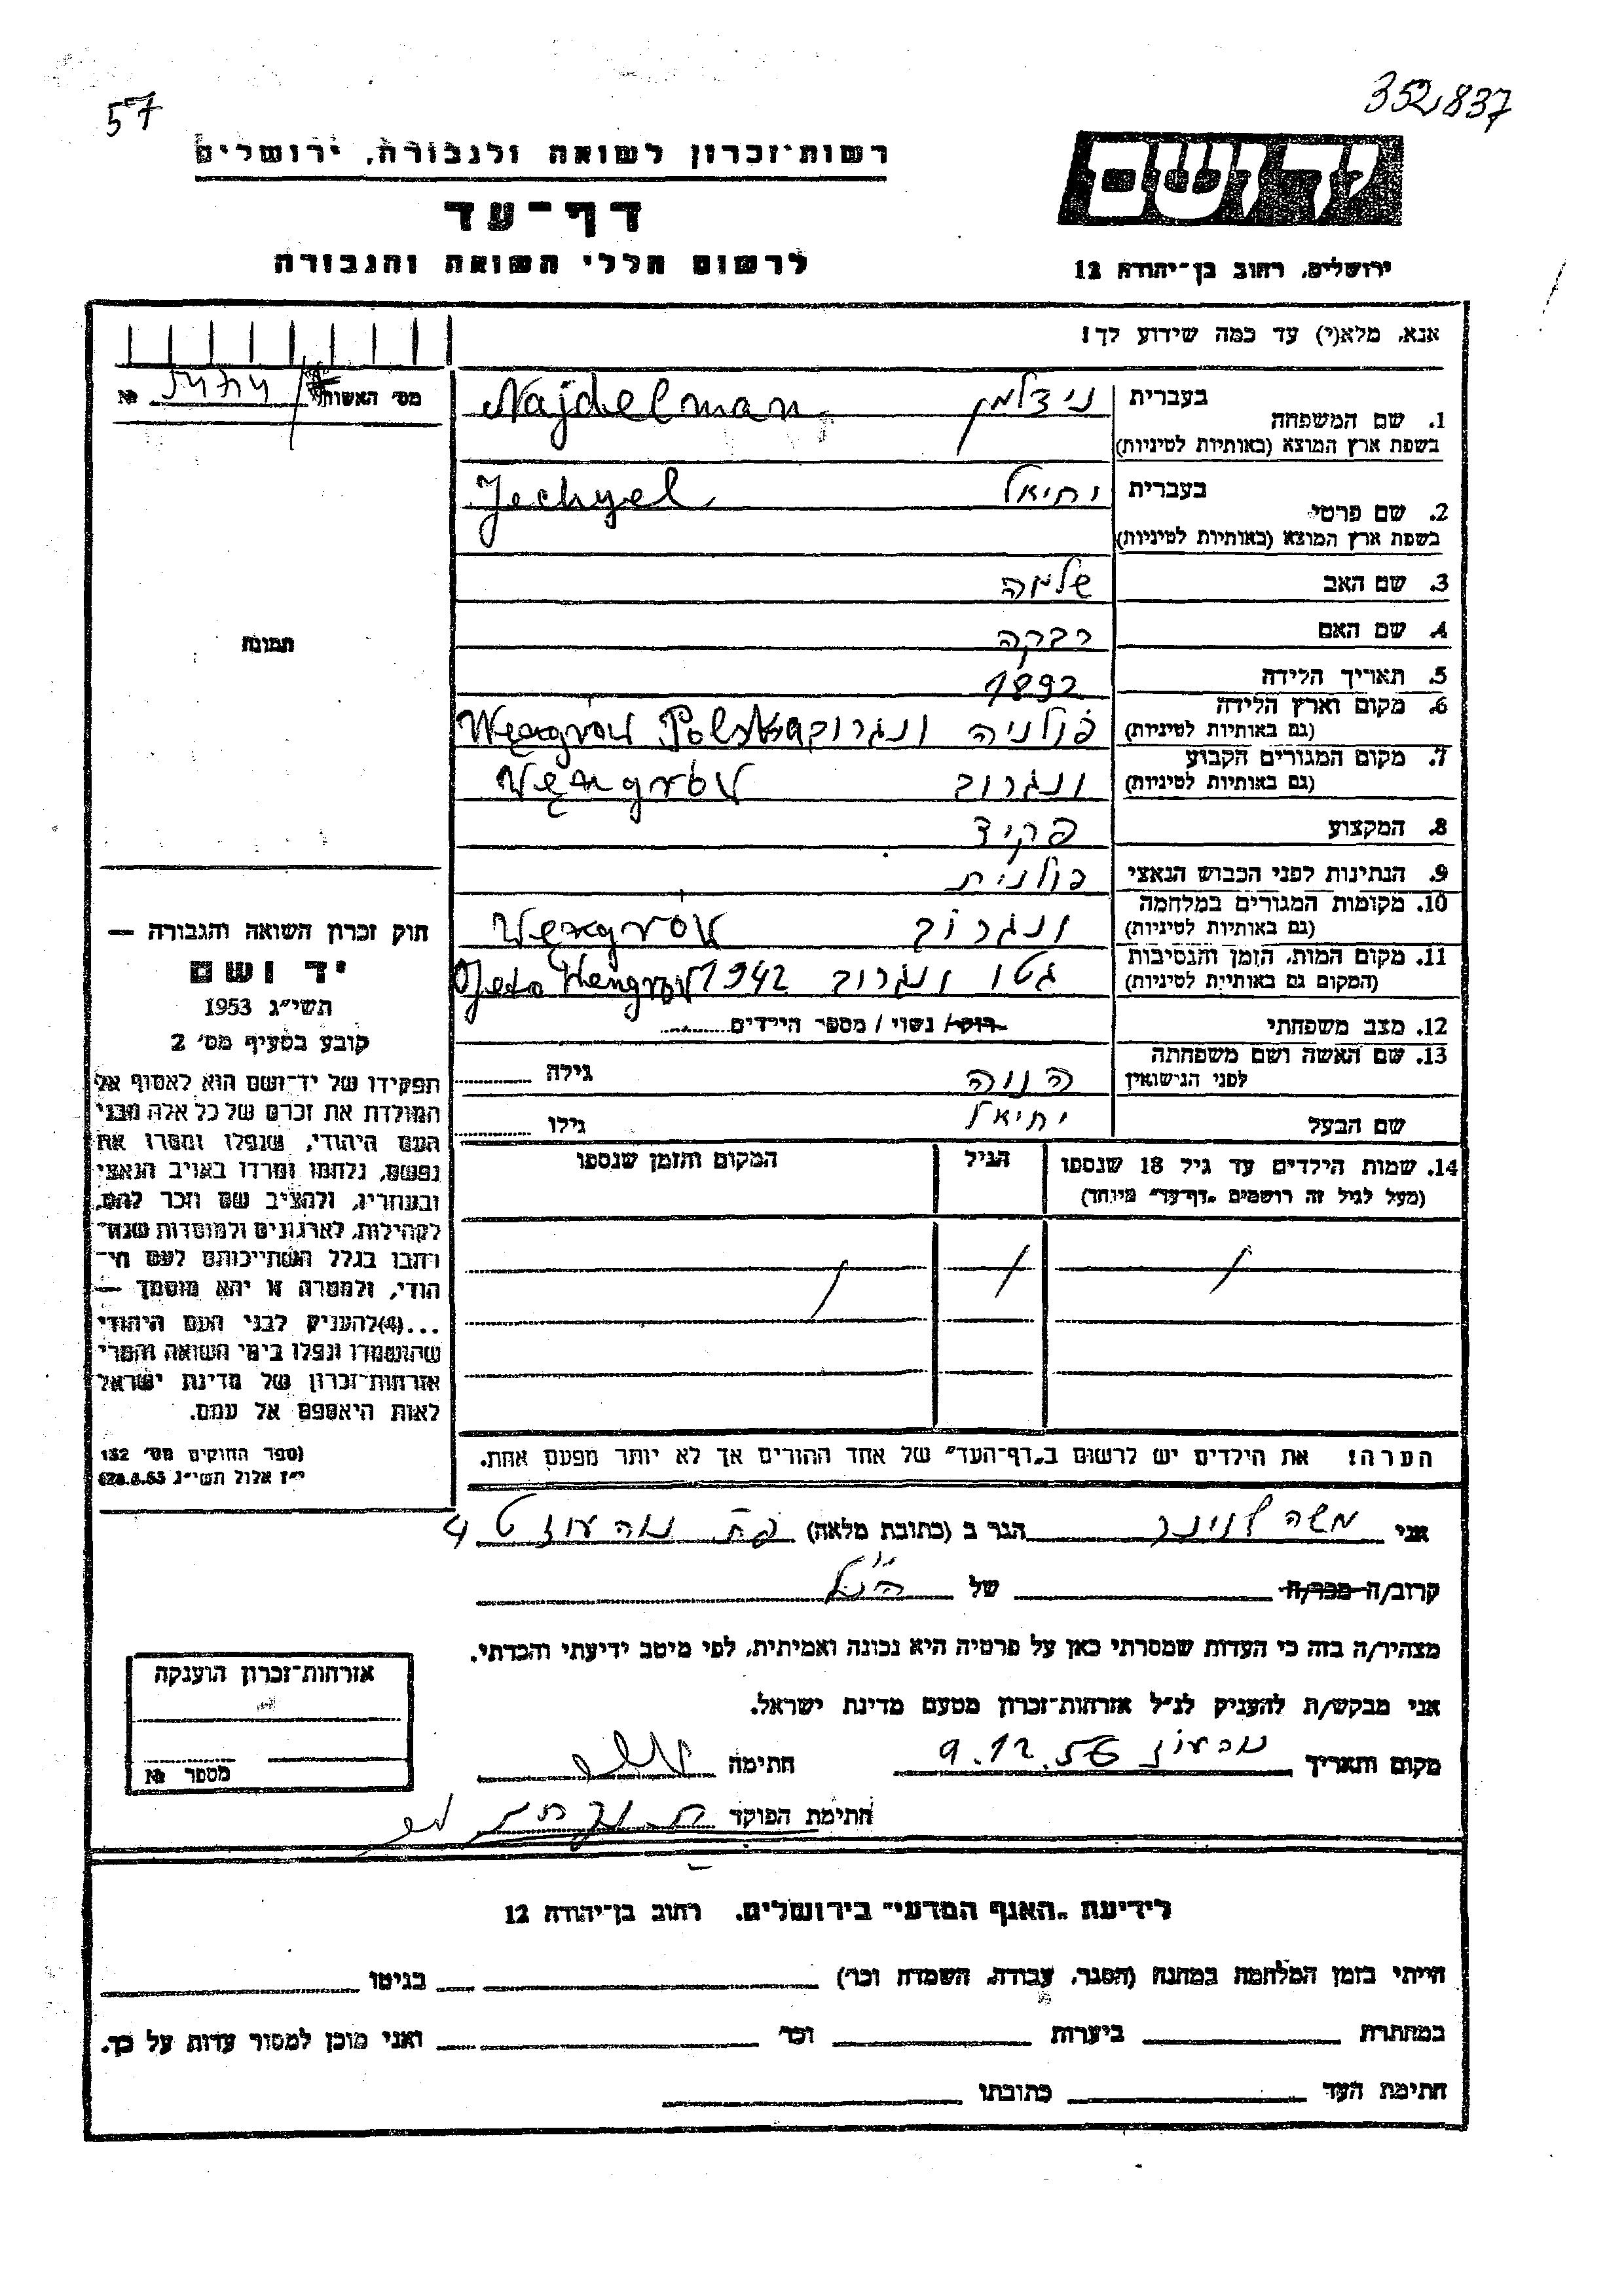 57
352837
רשות־זכרון לשואה ולגבורה, ירושלים
יד ושם
דף־עד
לרשום חללי השואה והגבורה
ירושלים, רחוב בן־יהודה 12
אנא, מלא(י) עד כמה שידוע לך!
מס׳ האשות №
1. שם המשפחה
בעברית ניידלמן Najdelman
בשפת ארץ המוצא (באותיות לטיניות)
2. שם פרטי
בעברית יחיאל Jechyel
בשפת ארץ המוצא (באותיות לטיניות)
3. שם האב שלמה
4. שם האם רבקה
5. תאריך הלידה 1892
6. מקום וארץ הלידה פולניה ונגרוב Węngrów Polska
(גם באותיות לטיניות)
7. מקום המגורים הקבוע ונגרוב Węngrów
(גם באותיות לטיניות)
8. המקצוע פקיד
9. הנתינות לפני הכבוש הנאצי פולנית
10. מקומות המגורים במלחמה ונגרוב Węngrów
(גם באותיות לטיניות)
11. מקום המות, הזמן והנסיבות גטו ונגרוב 1942 Wengrów
(המקום גם באותיות לטיניות)
12. מצב משפחתי רווק / נשוי / מספר הילדים
13. שם האשה ושם משפחתה
לפני הנישואין חנה גילה
שם הבעל יחיאל גילו
14. שמות הילדים עד גיל 18 שנספו הגיל המקום והזמן שנספו
(מעל לגיל זה רושמים „דף־עד״ מיוחד)
הערה: את הילדים יש לרשום ב„דף־העד״ של אחד ההורים אך לא יותר מפעם אחת.
תמונה
חוק זכרון השואה והגבורה —
יד ושם
תשי״ג 1953
קובע בסעיף מס׳ 2
תפקידו של יד־ושם הוא לאסוף אל
המולדת את זכרם של כל אלה מבני
העם היהודי, שנפלו ומסרו את
נפשם, נלחמו ומרדו באויב הנאצי
ובעוזריו, ולהציב שם וזכר להם,
לקהילות, לארגונים ולמוסדות שנח־
רבו בגלל השתייכותם לעם הי־
הודי, ולמטרה זו יהא מוסמך —
...(4)להעניק לבני העם היהודי
שהושמדו ונפלו בימי השואה והמרי
אזרחות־זכרון של מדינת ישראל
לאות היאספם אל עמם.
(ספר החוקים מס׳ 132
י״ז אלול תשי״ג 28.8.53)
אני משה הגר ב (כתובת מלאה)
קרוב/ה מכר/ה של הנ״ל
מצהיר/ה בזה כי העדות שמסרתי כאן על פרטיה היא נכונה ואמיתית, לפי מיטב ידיעתי והכרתי.
אני מבקש/ת להעניק לנ״ל אזרחות־זכרון מטעם מדינת ישראל.
מקום ותאריך 9.12.56 חתימה
חתימת הפוקד
אזרחות־זכרון הוענקה
מספר №
לידיעת „האגף המדעי״ בירושלים, רחוב בן־יהודה 12
הייתי בזמן המלחמה במחנה (הסגר, עבודת, השמדה וכו׳) בגיטו
במחתרת ביערות וכו׳ ואני מוכן למסור עדות על כך.
חתימת העד כתובתו